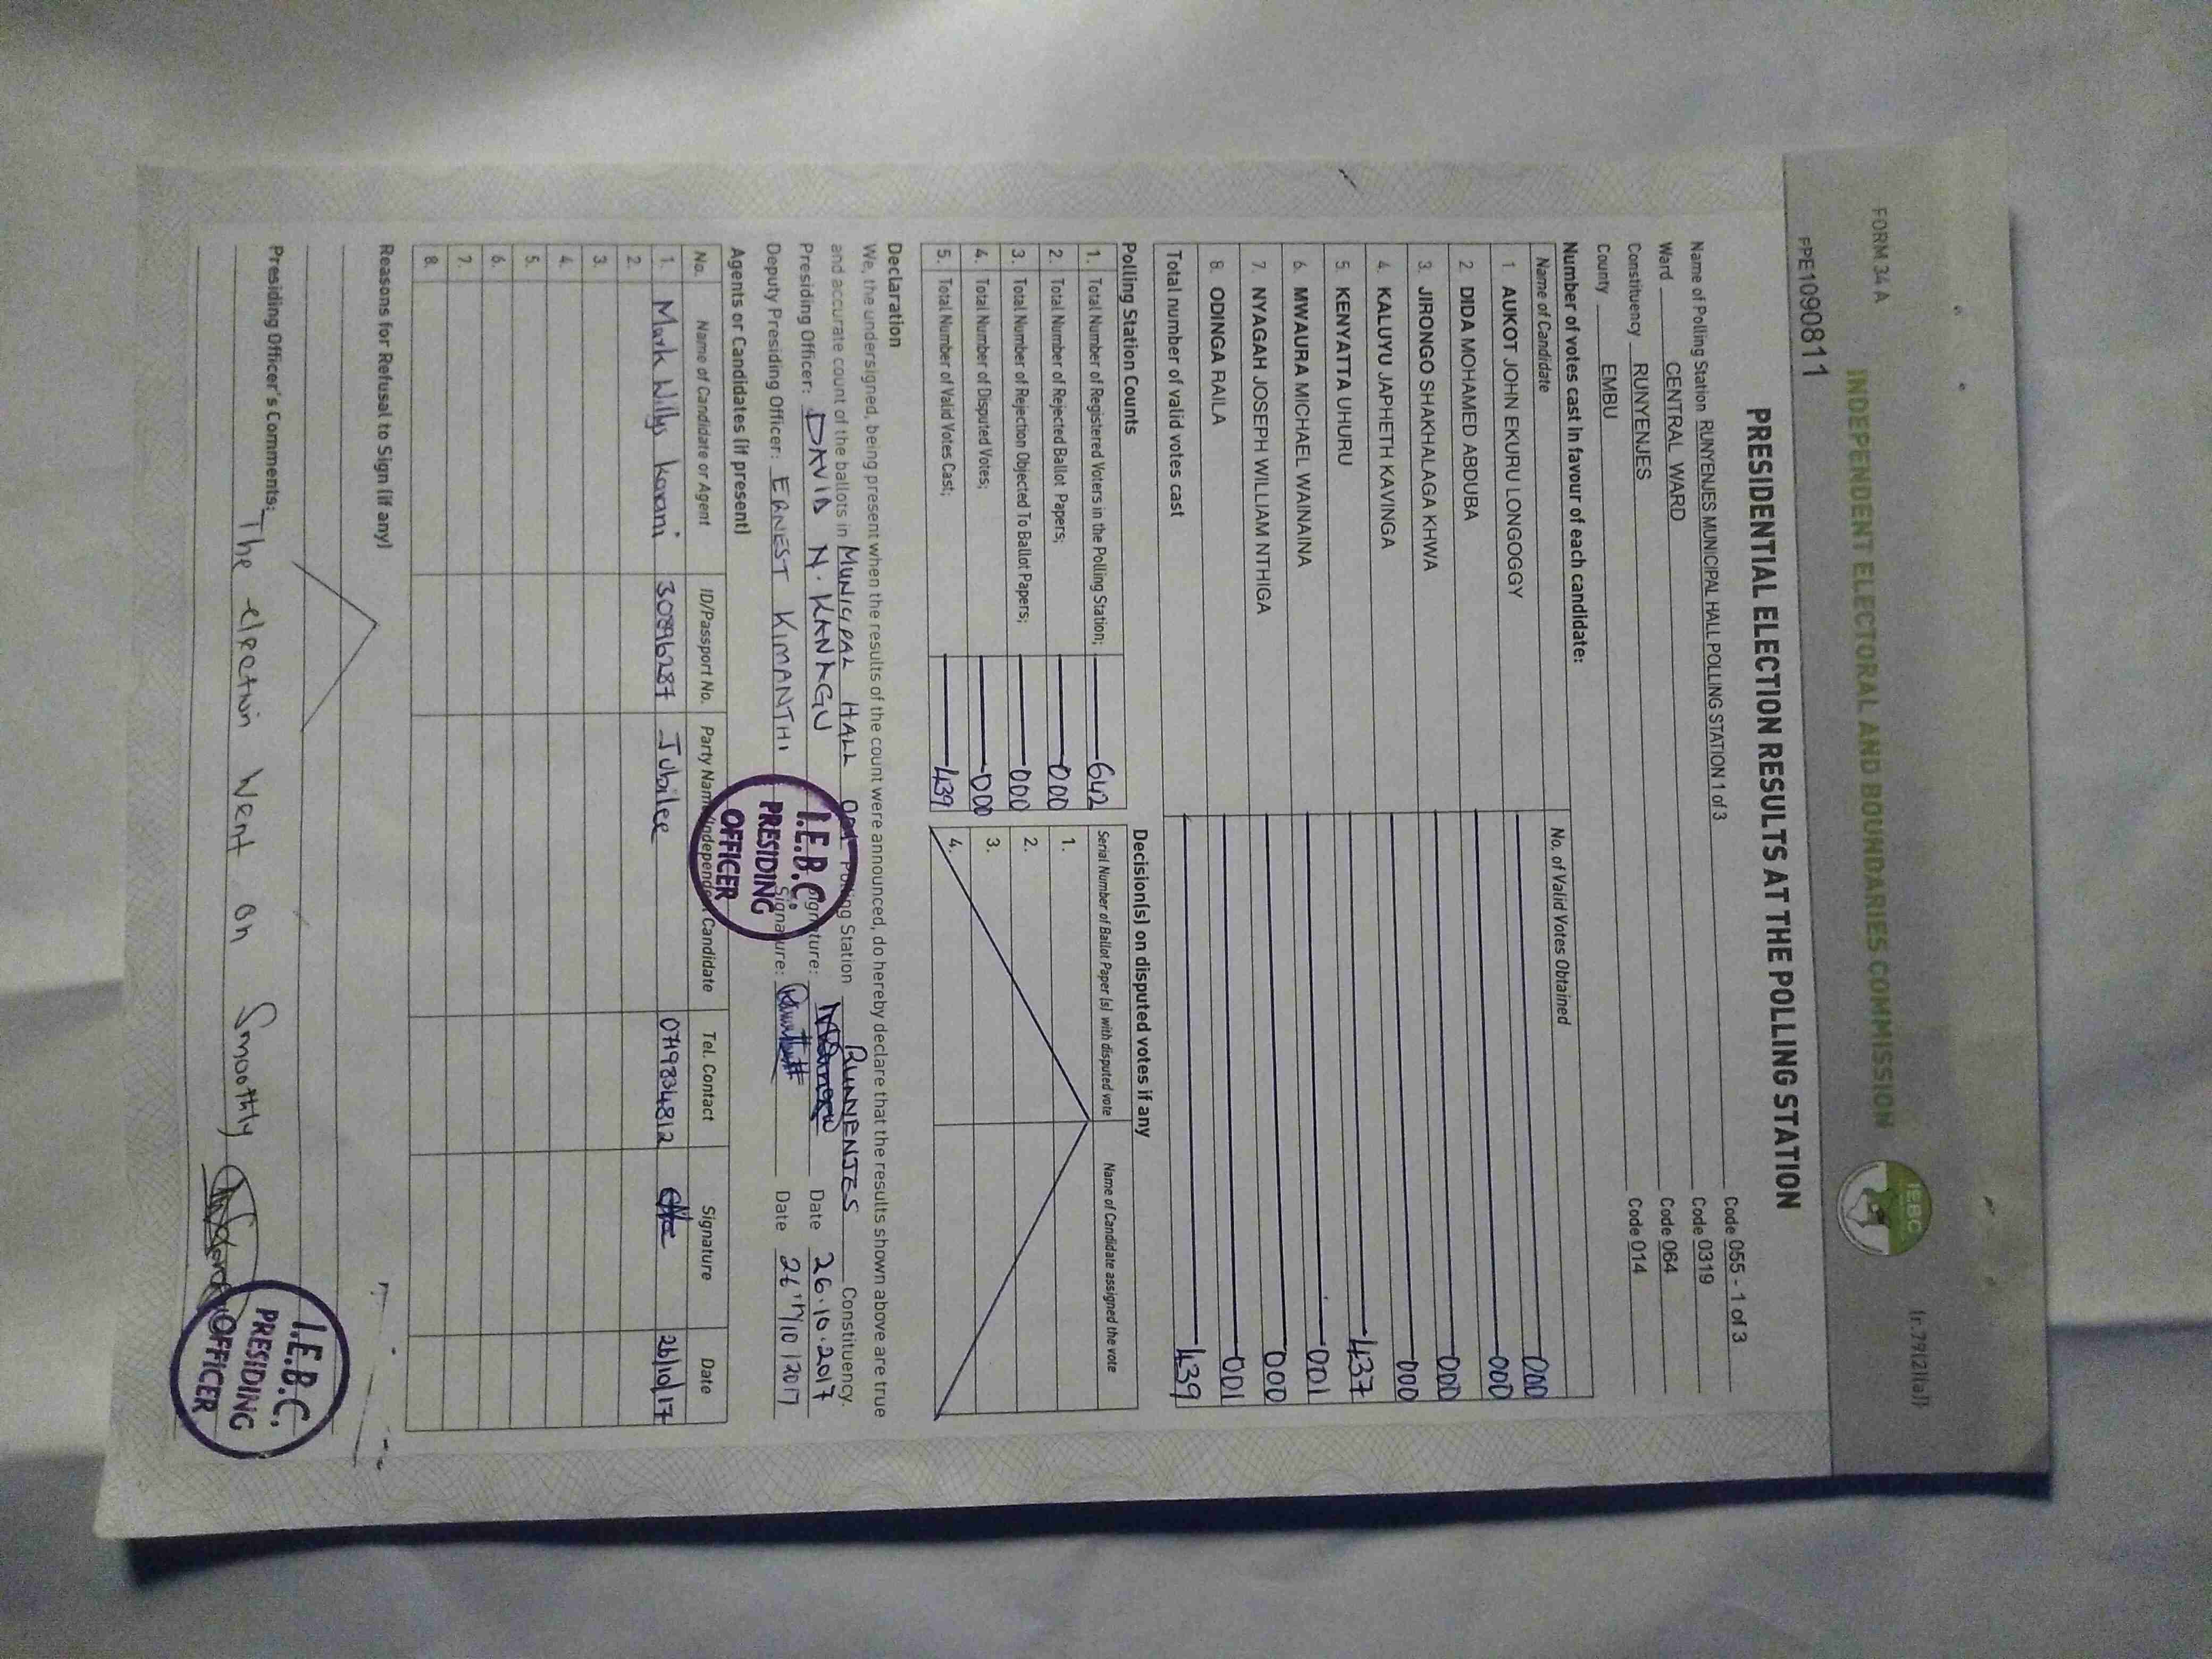 FORM 34 A
(r.79(2)(a))
INDEPENDENT ELECTORAL AND BOUNDARIES COMMISSION
IEBC
PPE1090811
PRESIDENTIAL ELECTION RESULTS AT THE POLLING STATION
Name of Polling Station RUNYENJES MUNICIPAL HALL POLLING STATION 1 of 3 Code 055 - 1 of 3
Code 0319
Ward CENTRAL WARD Code 064
Constituency RUNYENJES Code 014
County EMBU
Number of votes cast in favour of each candidate:
Name of Candidate No. of Valid Votes Obtained
1 AUKOT JOHN EKURU LONGOGGY 000
2 DIDA MOHAMED ABDUBA 000
3. JIRONGO SHAKHALAGA KHWA 000
4. KALUYU JAPHETH KAVINGA 000
5. KENYATTA UHURU 437
6. MWAURA MICHAEL WAINAINA 001
7. NYAGAH JOSEPH WILLIAM NTHIGA 000
8. ODINGA RAILA 001
Total number of valid votes cast 439
Polling Station Counts
1. Total Number of Registered Voters in the Polling Station; 642
2. Total Number of Rejected Ballot Papers; 000
3. Total Number of Rejection Objected To Ballot Papers; 000
4. Total Number of Disputed Votes; 000
5. Total Number of Valid Votes Cast; 439
Decision(s) on disputed votes if any
Serial Number of Ballot Paper (s) with disputed vote Name of Candidate assigned the vote
1.
2.
3.
4.
Declaration
We, the undersigned, being present when the results of the count were announced, do hereby declare that the results shown above are true
and accurate count of the ballots in MUNICIPAL HALL Polling Station RUNYENJES Constituency.
Presiding Officer: DAVID N. KANAGU Signature: Date 26.10.2017
Deputy Presiding Officer: ERNEST KIMANTHI Signature: Date 26TH/10/2017
I.E.B.C.
PRESIDING
OFFICER
Agents or Candidates (if present)
No. Name of Candidate or Agent ID/Passport No. Party Name/Independent Candidate Tel. Contact Signature Date
1. Mark Willys Karani 30896287 Jubilee 0719834812 26/10/17
2.
3.
4.
5.
6.
7.
8.
Reasons for Refusal to Sign (if any)
Presiding Officer's Comments: The election went on smoothly
I.E.B.C.
PRESIDING
OFFICER